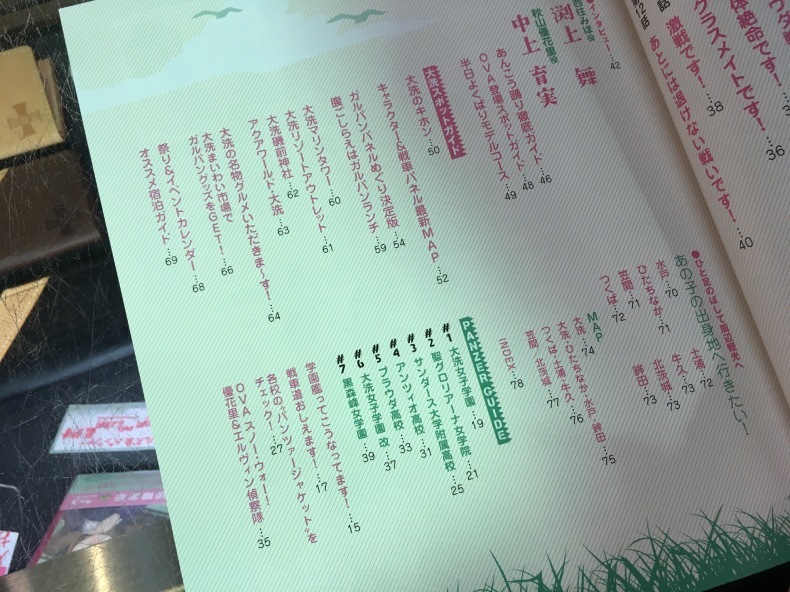 激戦です！
あとには退けない戦いです！…40
クラスメイトです！…38
体絶命です！…36
●インタビュー…42
西住みほ役
渕上 舞
秋山優花里役
中上 育実
あんこう踊り徹底ガイド…46
OVA登場スポットガイド…48
半日よくばりモデルコース…49
大洗スポットガイド
大洗のキホン…50
キャラクター&戦車パネル最新MAP…52
ガルパンパネルめぐり決定版…54
腹ごしらえはガルパンランチ…59
大洗マリンタワー…60
大洗リゾートアウトレット…61
大洗磯前神社…62
アクアワールド・大洗…63
大洗の名物グルメいただきま～す！…64
大洗まいわい市場で
ガルパングッズをGET！…66
祭り&イベントカレンダー…68
オススメ宿泊ガイド…69
●ひと足のばして周辺観光へ
あの子の出身地へ行きたい！
水戸…70
ひたちなか…71
笠間…71
つくば…72
土浦…72
牛久…73
北茨城…73
鉾田…73
MAP
大洗…74
大洗・ひたちなか・水戸・鉾田…75
つくば・土浦・牛久…76
笠間・北茨城…77
INDEX…78
PANZER GUIDE
#1 大洗女子学園…19
#2 聖グロリアーナ女学院…21
#3 サンダース大学附属高校…25
#4 アンツィオ高校…31
#5 プラウダ高校…33
#6 大洗女子学園 改…37
#7 黒森峰女学園…39
学園艦ってこうなってます！…15
戦車道おしえます！…17
各校の“パンツァージャケット”を
チェック！…27
OVA スノー・ウォー！
優花里&エルヴィン偵察隊…35